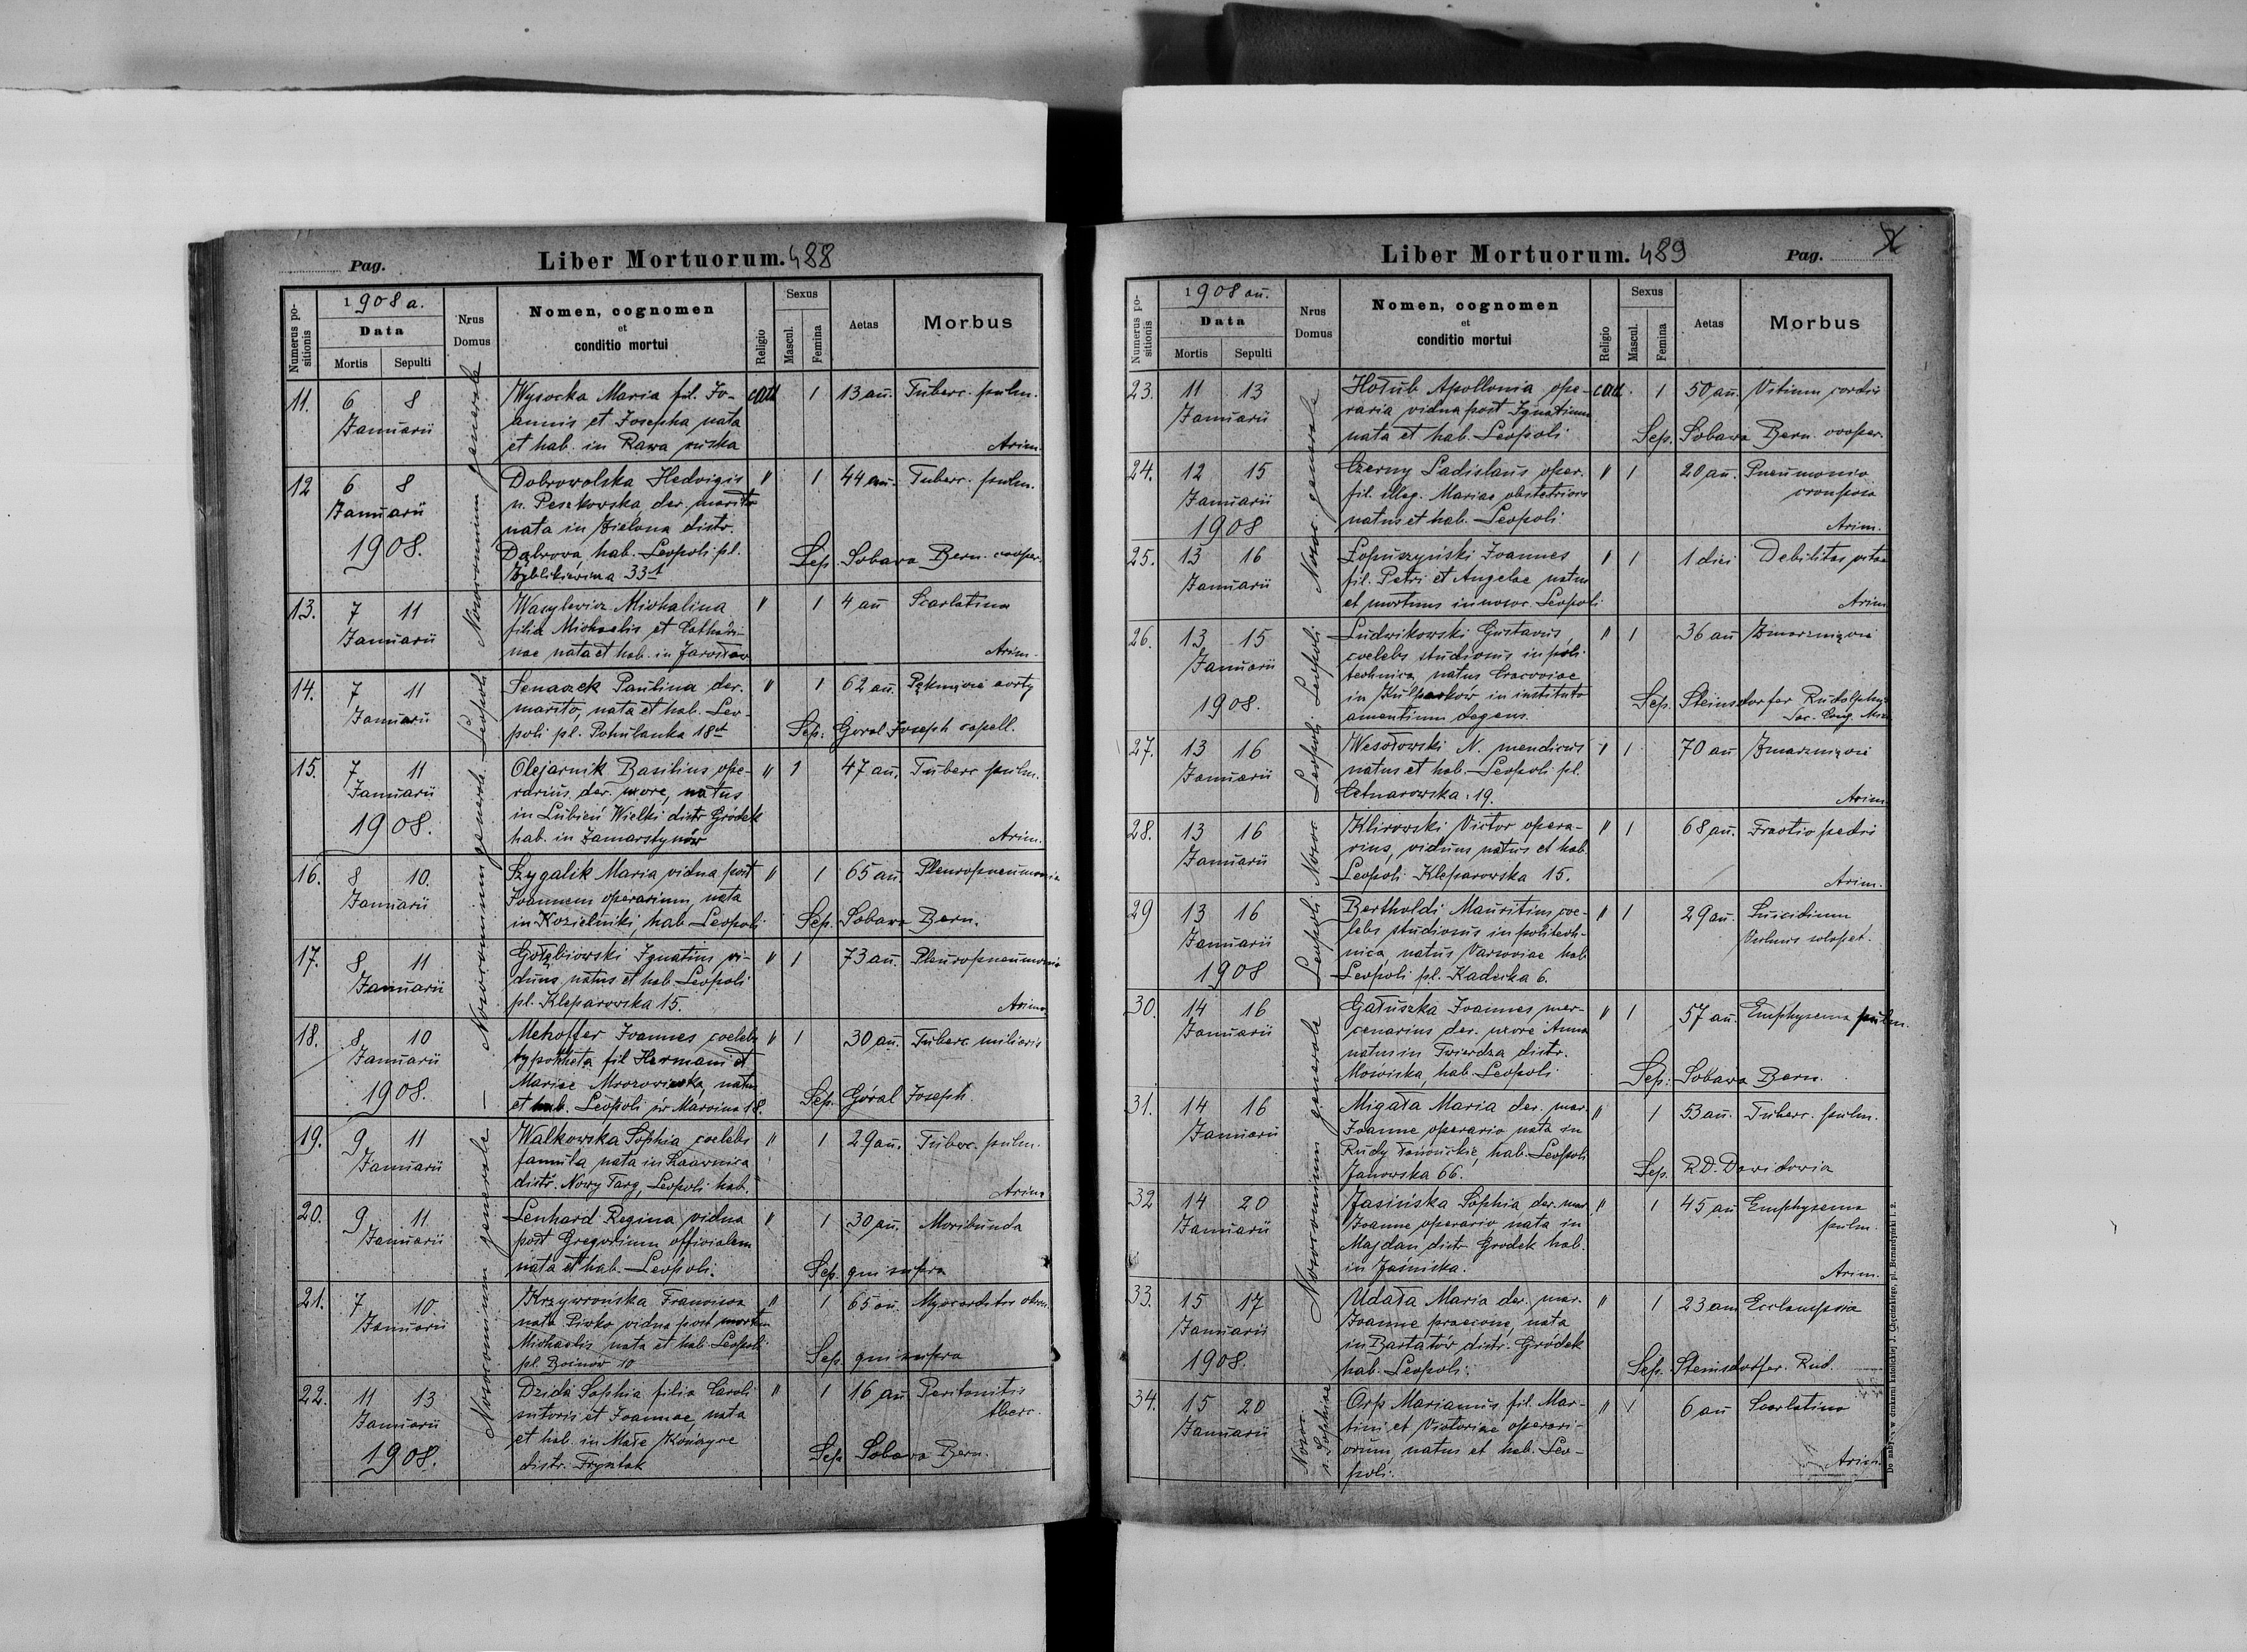 Pag.
Liber Mortuorum. 488
Numerus positionis
1908 a.
Data
Mortis Sepulti
Nrus Domus
Nomen, cognomen
et
conditio mortui
Religio
Sexus
Mascul. Femina
Aetas
Morbus
Nosocomium generale Leopoli
11. 6 8 Wysocka Maria fil. Jo- cath 1 13 an. Tuberc. pulm.
Januarii annis et Josepha nata
et hab. in Rawa ruska Arim.
12 6 8 Dobrowolska Hedvigis " 1 44 an. Tuberc. pulm.
Januarii n. Peszkowska, der. marito
1908. nata in Zielona distr.
Dąbrowa, hab. Leopoli pl. Sep. Sobawa Bern. cooper.
Zyblikiewicza 33
13. 7 11 Wasylewicz Michalina " 1 4 an Scarlatina
Januarii filia Michaelis et Cathari-
nae nata et hab. in Jarosław Arim.
14. 7 11 Senaszek Paulina der. " 1 62 an. Pęknięcie aorty
Januarii marito, nata et hab. Leo-
poli pl. Pohulanka 18 Sep: Goral Joseph capell.
15. 7 11 Olejarnik Basilius ope- " 1 47 an. Tuberc pulm.
Januarii rarius der. uxore, natus
1908. in Lubień Wielki distr Grodek
hab. in Zamarstynów Arim.
16. 8 10. Szygalik Maria vidua post " 1 65 an. Pleuropneumonia
Januarii Joannem operarium, nata
in Kozielniki, hab. Leopoli Sep. Sobawa Bern.
17. 8 11 Gołębiowski Ignatius vi- " 1 73 an. Pleuropneumonia
Januarii duus, natus et hab. Leopoli
pl. Kleparowska 15. Arim
18. 8 10 Mehoffer Joannes coelebs " 1 30 an. Tuberc miliaris
Januarii typotheta fil Hermani et
1908. Mariae natus
et hab. Leopoli św Marcina 18. Sep. Góral Joseph.
19. 9 11 Walkowska Sophia coelebs " 1 29 an. Tuberc. pulm.
Januarii famula nata in
distr. Nowy Targ, Leopoli hab. Arim
20. 9 11 Lenhard Regina vidua " 1 30 an. Moribunda
Januarii post Gregorium officialem
nata et hab. Leopoli. Sep. qui supra
21. 7 10. Krzywrońska Francisca " 1 65 an. Myocarditis
Januarii nata Piwko vidua post mortem
Michaelis, nata et hab Leopoli
pl. Boimów 10 Sep. qui supra
22. 11 13 Dzida Sophia filia Caroli " 1 16 an Peritonitis
Januarii sutoris et Joannae, nata tberc.
1908. et hab. in Małe
distr. Frysztak Sep Sobawa Bern.
Liber Mortuorum. 489
Pag.
Numerus positionis
1908 an.
Data
Mortis Sepulti
Nrus Domus
Nomen, cognomen
et
conditio mortui
Religio
Sexus
Mascul. Femina
Aetas
Morbus
Nosocomium generale Leopoli
23. 11 13 Hołub Apollonia ope- cath. 1 50 an. Vitium cordis
Januarii raria vidua post Ignatium
nata et hab. Leopoli Sep. Sobawa Bern. cooper.
24. 12 15 Czerny Ladislaus oper. " 1 20 an. Pneumonia
Januarii fil. illeg. Mariae obstetricis crouposa
1908 natus et hab. Leopoli Arim.
25. 13 16 Łopuszyński Joannes " 1 1 diei Debilitas vitae
Januarii fil. Petri et Angelae, natus
et mortuus in nosoc. Leopoli Arim
26. 13 15 Ludwikowski Gustavus, " 1 36 an Zmarznięcie
Januarii coelebs studiosus in poli-
technica, natus Cracoviae
1908. in Kulparków in instituto Sep. Steinsdorfer Rudolphus
amentium degens. Sac. Cong. Miss.
27. 13 16 Wesołowski N. mendicus " 1 70 an Zmarznięcie
Januarii natus et hab. Leopoli pl.
Cetnarowska 19. Arim
28. 13 16 Klirowski Victor opera- " 1 68 an. Fractio pedis
Januarii rius, viduus natus et hab.
Leopoli Kleparowska 15. Arim.
29 13 16 Bertholdi Mauritius coe- " 1 29 an. Suicidium
Januarii lebs studiosus in politech- Vulnus sclopet.
nica, natus Varsoviae hab.
1908 Leopoli pl. Kadecka 6.
30. 14 16 Gałuszka Joannes mer- " 1 57 an. Emphysema pulm.
Januarii cenarius der. uxore Anna
natus in Twierdza distr.
Mościska, hab. Leopoli. Sep: Sobawa Bern.
31. 14 16 Migała Maria der. mar. " 1 53 an. Tuberc. pulm.
Januarii Joanne operario nata in
Rudy hab. Leopoli
Janowska 66. Sep. R.D.
32 14 20 Jasińska Sophia, der. mar " 1 45 an Emphysema
Januarii Joanne, operario nata in pulm.
Majdan, distr. Grodek hab.
in Jaśniska. Arim.
33. 15 17 Udała Maria der. mar. " 1 23 an Ecclampsia
Januarii Joanne praecone, nata
in Bartatów distr. Gródek
1908. hab. Leopoli. Sep. Steinsdorfer. Rud.
34. 15 20 Nosoc. s. Sophiae Orp Marianus fil. Mar- " 1 6 an Scarlatina
Januarii tini et Victoriae operari-
orum, natus et hab. Leo-
poli. Arim.